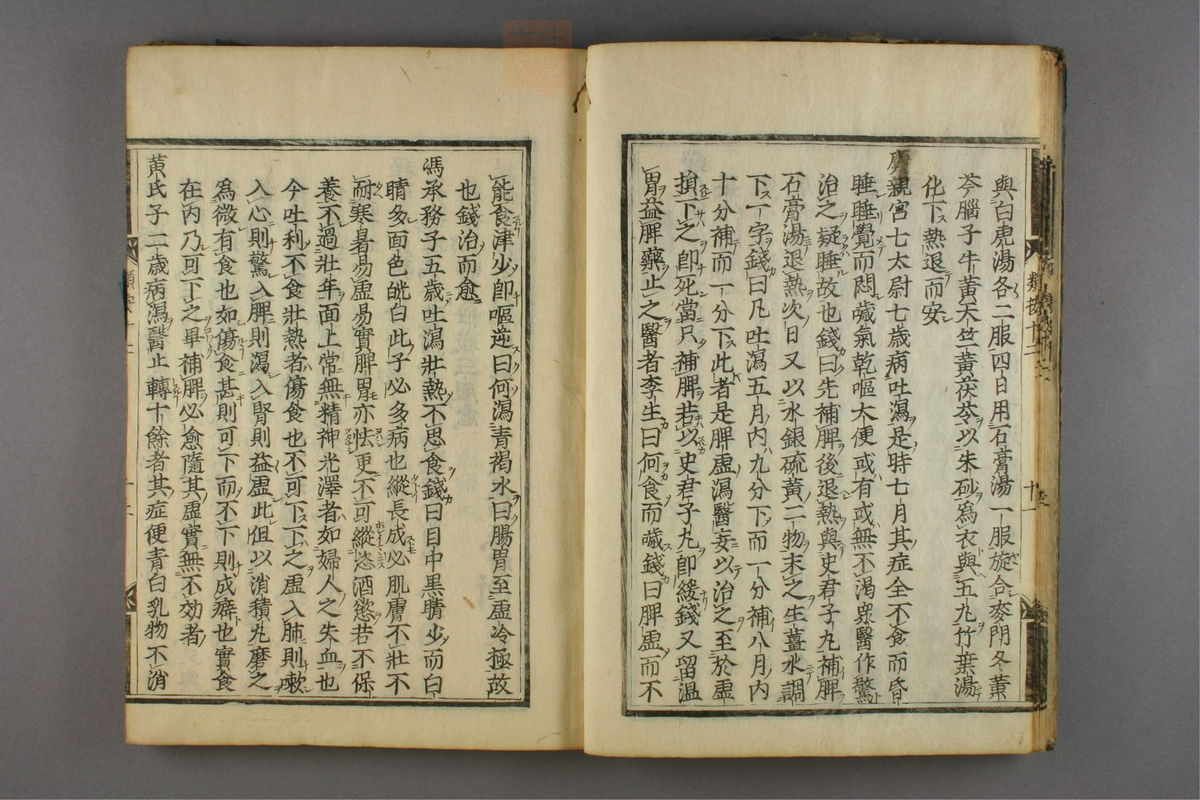 與白虎湯各二服四日用石膏湯一服旋合麥門冬黃
芩腦子牛黃天竺黃茯苓以朱砂爲衣與五丸竹葉湯
化下熱退而安
廣親宮七太尉七歲病吐瀉是時七月其症全不食而昏
睡睡覺而悶噦氣乾嘔大便或有或無不渴眾醫作驚
治之疑睡故也錢曰先補脾後退熱與史君子丸補脾
石膏湯退熱次日又以水銀硫黃二物末之生薑水調
下一字錢曰凡吐瀉五月内九分下而一分補八月内
十分補而一分下此者是脾虛瀉醫妄以治之至於虛
損下之卽死當只補脾若以史君子丸卽緩錢又留温
胃益脾藥止之醫者李生曰何食而噦錢曰脾虛而不
能食津少卽嘔逆曰何瀉青褐水曰腸胃至虛冷極故
也錢治而愈
馮承務子五歲吐瀉壯熱不思食錢曰目中黑睛少而白
睛多面色㿠白此子必多病也縱長成必肌膚不壯不
耐寒暑易虛易實脾胃亦怯更不可縱恣酒慾若不保
養不過壯年面上常無精神光澤者如婦人之失血也
今吐利不食壯熱者傷食也不可下下之虛入肺則嗽
入心則驚入脾則瀉入腎則益虛此但以消積丸磨之
爲微有食也如傷食甚則可下而不下則成癖也實食
在内乃可下之畢補脾必愈隨其虛實無不効者
黃氏子二歲病瀉醫止 轉十餘者其症便青白乳物不消